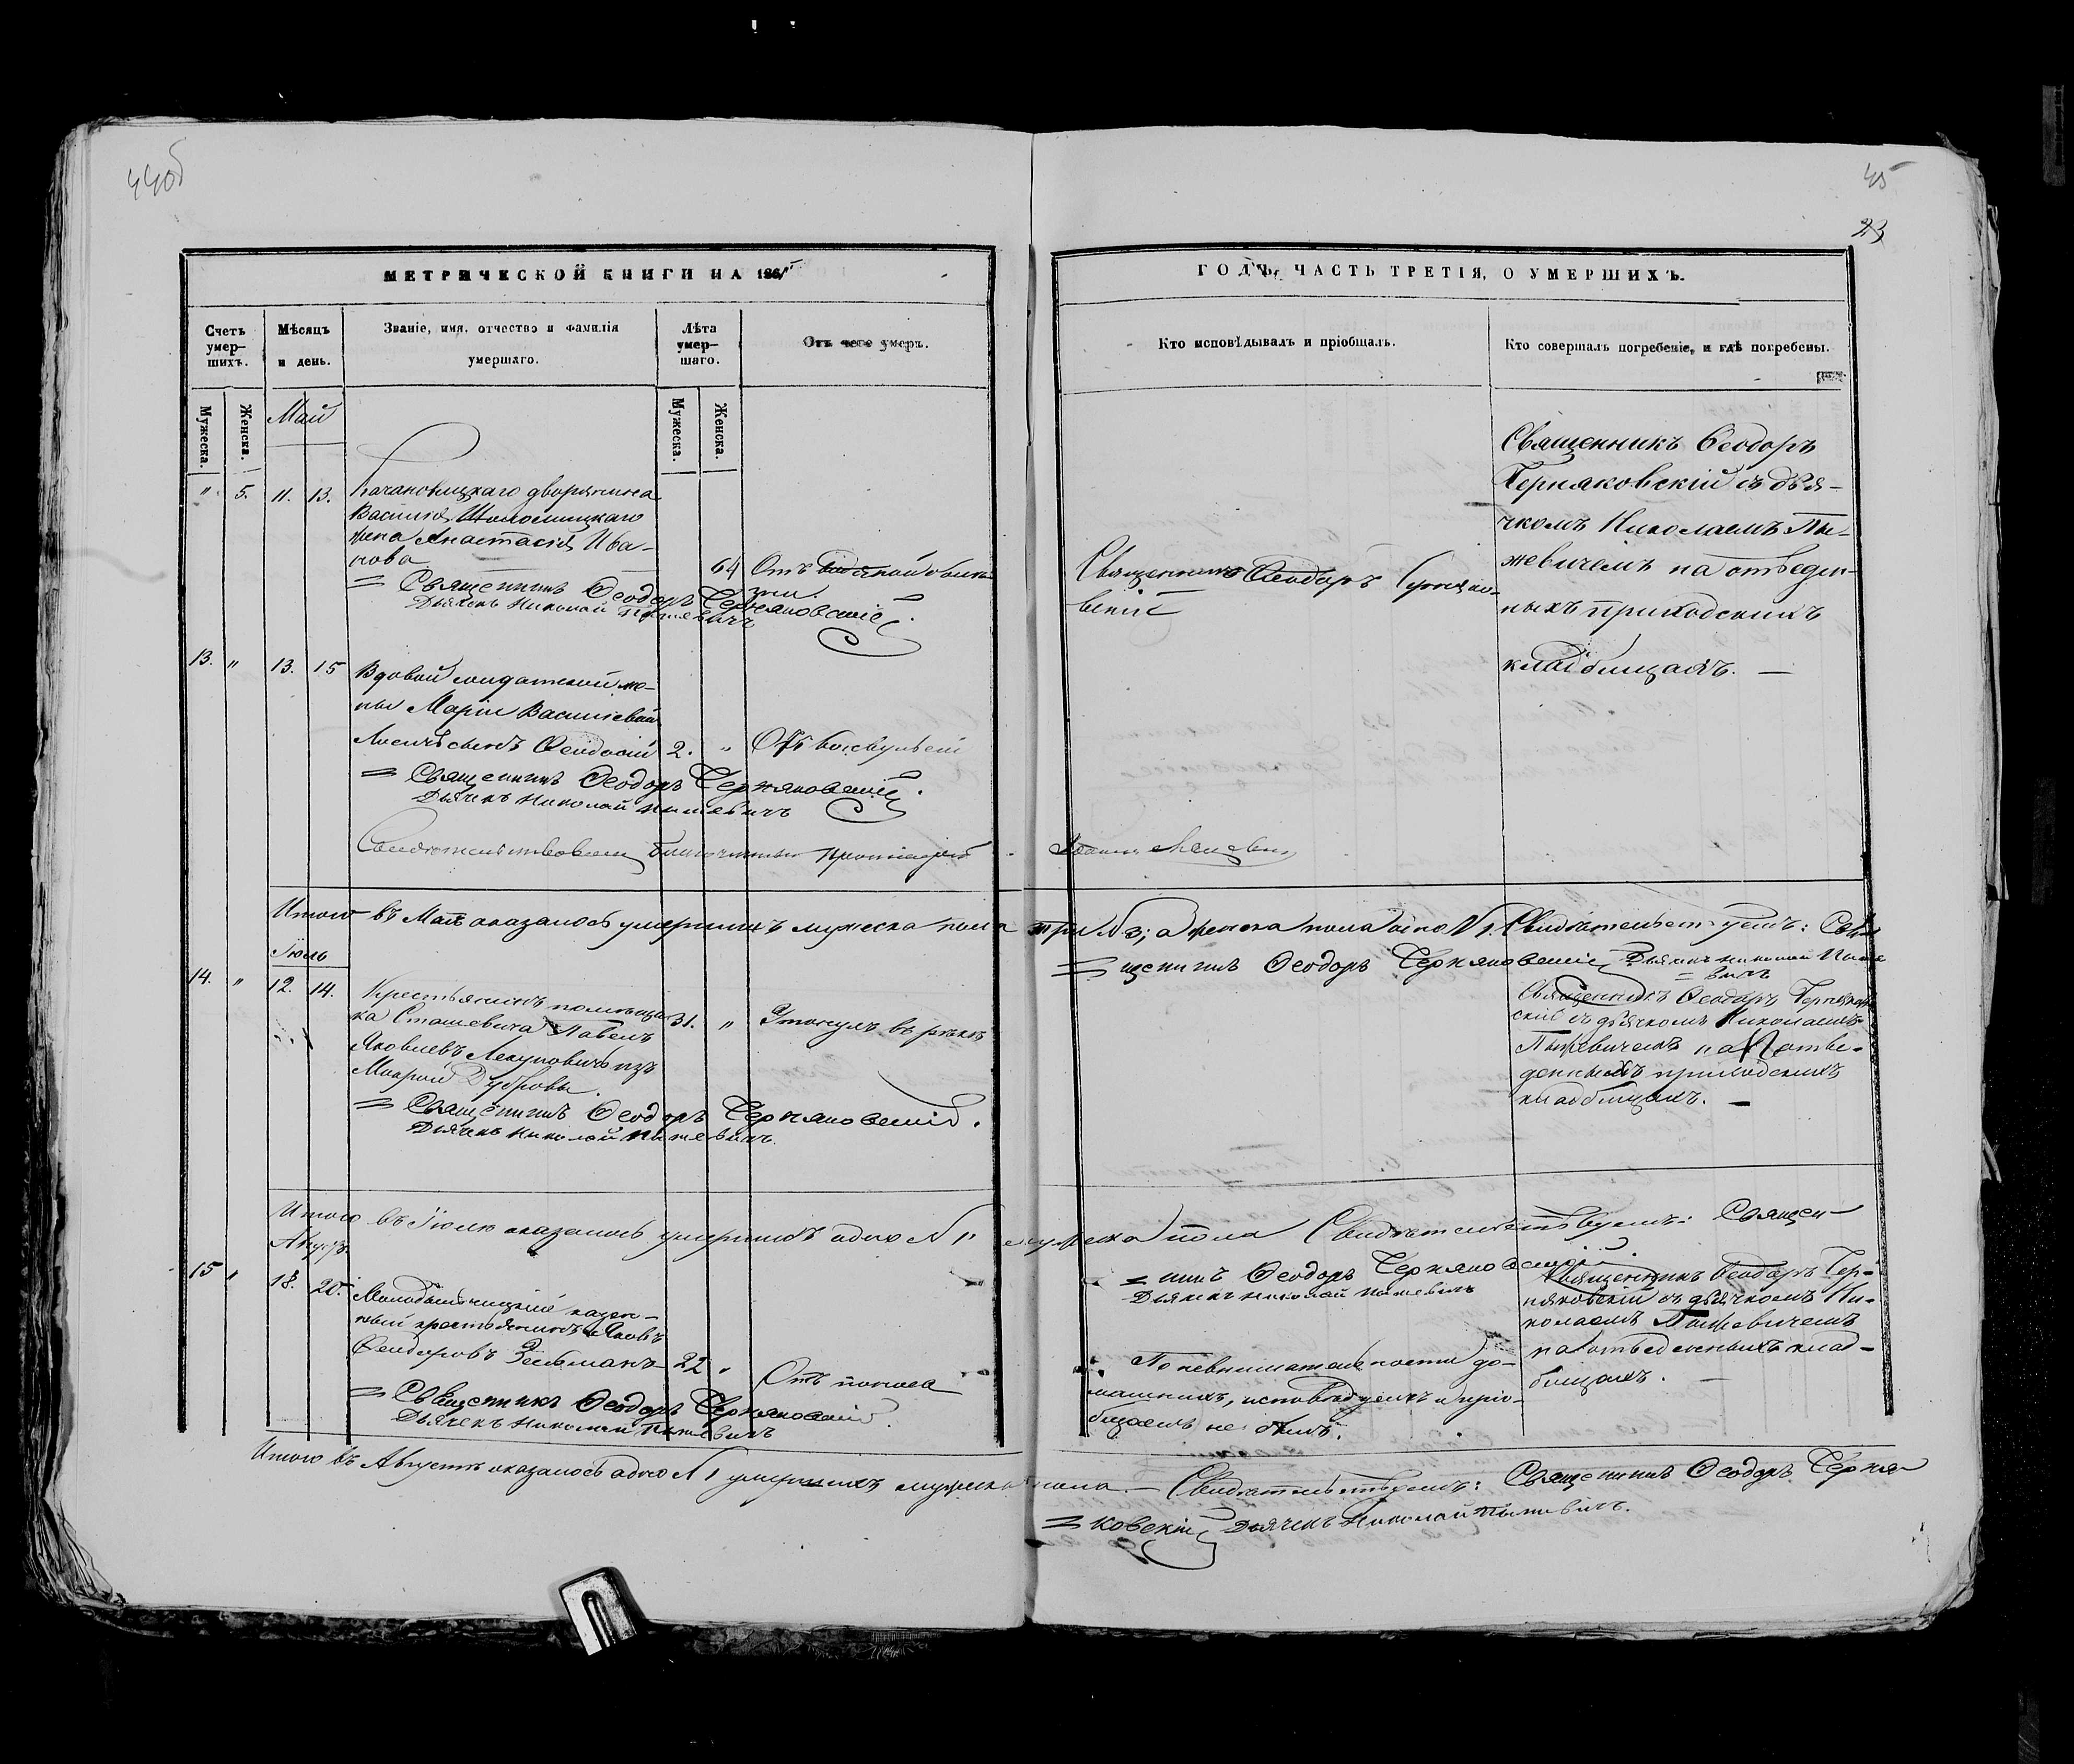 44об
45
23
МЕТРИЧЕСКОЙ КНИГИ НА 1861
ГОДЪ, ЧАСТЬ ТРЕТІЯ, О УМЕРШИХЪ.
Счетъ умер-
шихъ.
Мѣсяцъ
и день.
Званіе, имя, отчество и фамилія
умершаго.
Лѣта
умер-
шаго.
Отъ чего умеръ.
Кто исповѣдывалъ и пріобщалъ.
Кто совершалъ погребеніе, и гдѣ погребены.
Мужеска.
Женска.
Май
Мужеска.
Женска.
" 5. 11. 13.
дворянина
Василія
жена Анастасія Ива-
нова
64 Отъ водяной болѣ-
зни.
= Священникъ Ѳеодоръ Черняковскій
Дьячекъ Николай Пыжевичъ
Священникъ Ѳеодоръ Черняко-
вскій
Священникъ Ѳеодоръ
Черняковскій съ дья-
чкомъ Николаемъ Пы-
жевичемъ на отведен-
ныхъ приходскихъ
кладбищахъ. —
13. " 13. 15
Вдовой солдатской же-
ны Маріи Василіевой
сынъ Ѳеодосій 2. "
= Священникъ Ѳеодоръ Черняковскій.
Дьячекъ Николай Пыжевичъ
Свидѣтельствовалъ благочинный Протоіерей
Итого въ Маѣ оказалось умершихъ мужеска пола три № 3; а женска пола одно № 1. Свидѣтельствуемъ: Свя-
= щенникъ Ѳеодоръ Черняковскій Дьячекъ Николай Пыже
= вичъ
Іюль
14. " 12. 14.
Крестьянинъ помѣщи-
ка Сташевича Павелъ 31. " Утонулъ въ рѣкѣ
Яковлевъ изъ
Мокрой Дубровы.
= Священникъ Ѳеодоръ Черняковскій.
Дьячекъ Николай Пыжевичъ.
Священникъ Ѳеодоръ Черняков-
скій съ дьячкомъ Николаемъ
Пыжевичемъ на отве-
денныхъ приходскихъ
кладбищахъ. —
Итого въ Іюлѣ оказалось умершихъ одно № 1 мужеска пола Свидѣтельствуемъ: Священ-
= никъ Ѳеодоръ Черняковскій
Дьячекъ Николай Пыжевичъ
Августъ
15 " 18. 20.
казен-
ный крестьянинъ Яковъ
Ѳеодоровъ 22 "
Отъ поноса
= Священникъ Ѳеодоръ Черняковскій.
Дьячекъ Николай Пыжевичъ
По невнимательности до-
машнихъ, исповѣдуемъ и пріо-
бщаемъ не былъ.
Священникъ Ѳеодоръ Чер-
няковскій съ дьячкомъ Ни-
колаемъ Пыжевичемъ
на отведенныхъ клад-
бищахъ. —
Итого въ Августѣ оказалось одно № 1 умершихъ мужеска пола. — Свидѣтельствуемъ: Священникъ Ѳеодоръ Черня-
= ковскій Дьячекъ Николай Пыжевичъ.